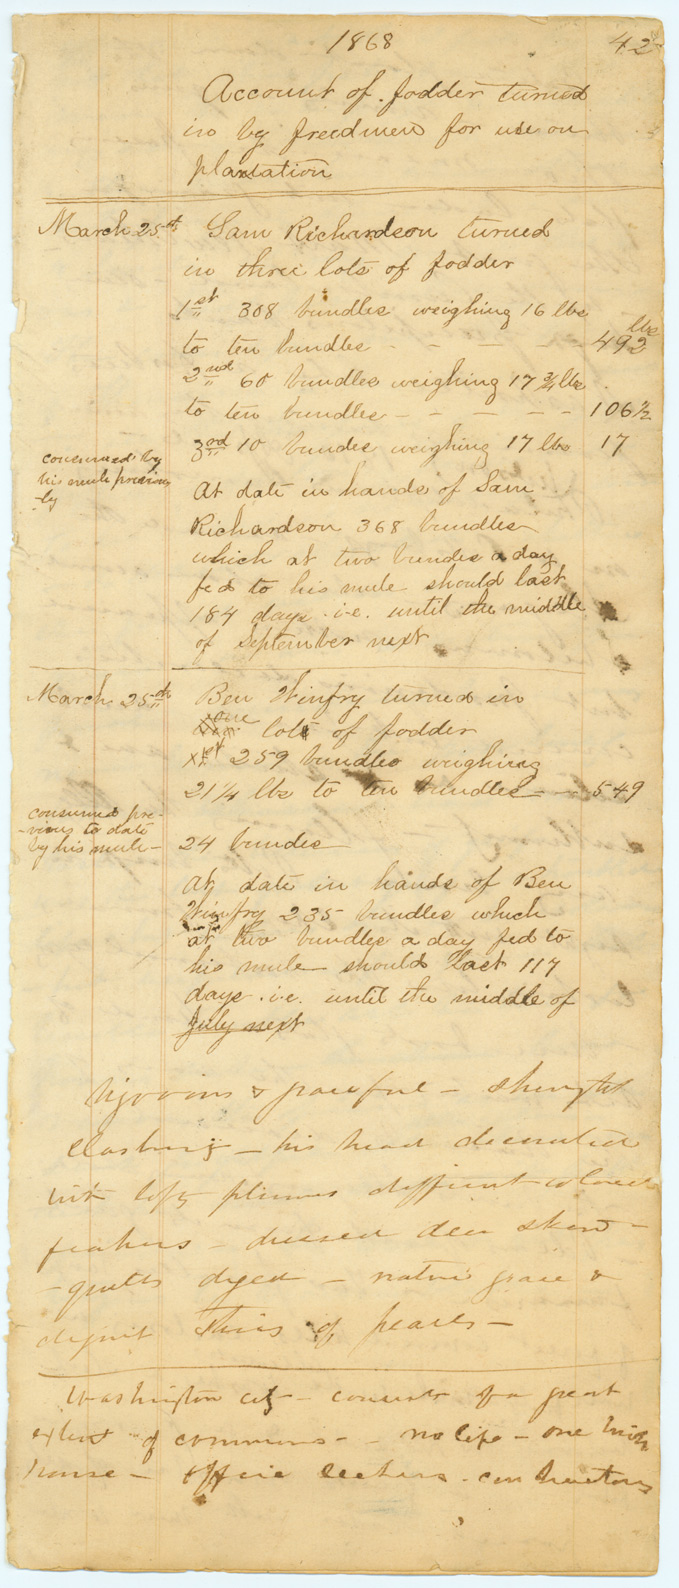 1868 42
Account of fodder turned
in by freedmen for use on
plantation
March 25th Sam Richardson turned
in three lots of fodder
1st 308 bundles weighing 16 lbs
lbs
to ten bundles - - - - - 492
2nd 60 bundles weighing 17 3/4 lbs
to ten bundles - - - - - 106 1/2
3rd 10 bundes weighing 17 lbs 17
consumed by
his mule previous
-ly
At date in hands of Sam
Richardson 368 bundles
which at two bundes a day
fed to his mule should last
184 days i.e. until the middle
of September next
March 25th Ben Winfry turned in
one lots of fodder
1st 259 bundles weighing
21 1/4 lbs to ten bundles - - 549
consumed pre-
-vious to date
by his mule -
24 bundes
At date in hands of Ben
Winfry 235 bundles which
at two bundles a day fed to
his mule should last 117
days i.e. until the middle of
July next
Vigorous & graceful - strength
- his head decorated
with lofty plumes different colored
feathers - dressed deer skin -
- quills dyed - native grace &
dignity of pearls -
Washington city - consists of a great
extent of commons - no life - one
house - office seekers - contractors